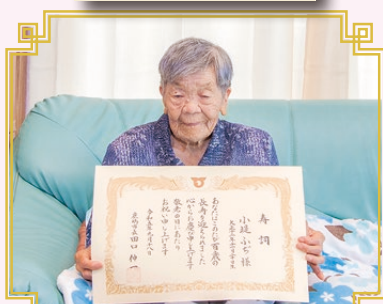 寿詞
小堤 ふぢ 様
あなたはこのたび百歳の
長寿を迎えられました
心からお慶び申し上げます
敬老の日にあたり
お祝い申し上げます
令和五年九月十八日
鹿嶋市長 田口 伸一